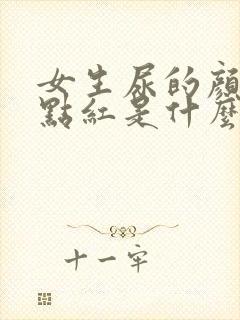 女生尿的顏
點紅是什麼
十一牢